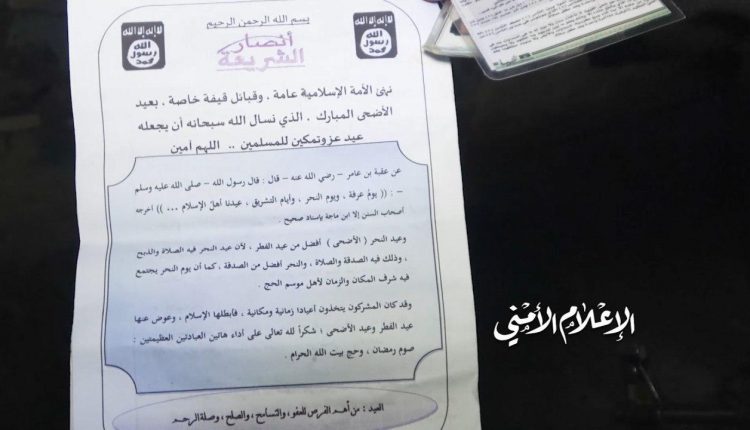 بسم الله الرحمن الرحيم
لا إله إلا الله
الله
رسول
محمد
أنصار
الشريعة
لا إله إلا الله
الله
رسول
محمد
نهنئ الأمة الإسلامية عامة ، وقبائل قيفة خاصة ، بعيد
الأضحى المبارك ، الذي نسال الله سبحانه أن يجعله
عيد عزوتمكين للمسلمين .. اللهم أمين
عن عقبة بن عامر – رضي الله عنه – قال : قال رسول الله – صلى الله عليه وسلم
– : (( يومُ عرفة ، ويوم النحر ، وأيام التشريق ، عيدنا أهلَ الإسلام ... )) أخرجه
أصحاب السنن إلا ابن ماجة بإسناد صحيح .
وعيد النحر ( الأضحى ) أفضل من عيد الفطر ، لأن عيد النحر فيه الصلاة والذبح
، وذلك فيه الصدقة والصلاة ، والنحر أفضل من الصدقة ، كما أن يوم النحر يجتمع
فيه شرف المكان والزمان لأهل موسم الحج .
وقد كان المشركون يتخذون أعيادا زمانية ومكانية ، فأبطلها الإسلام ، وعوض عنها
عيد الفطر وعيد الأضحى ؛ شكراً لله تعالى على أداء هاتين العبادتين العظيمتين :
صوم رمضان ، وحج بيت الله الحرام .
العيد : من أهم الفرص للعفو، والتسامح ، والصلح ، وصلة الرحم
الإعلام الأمني